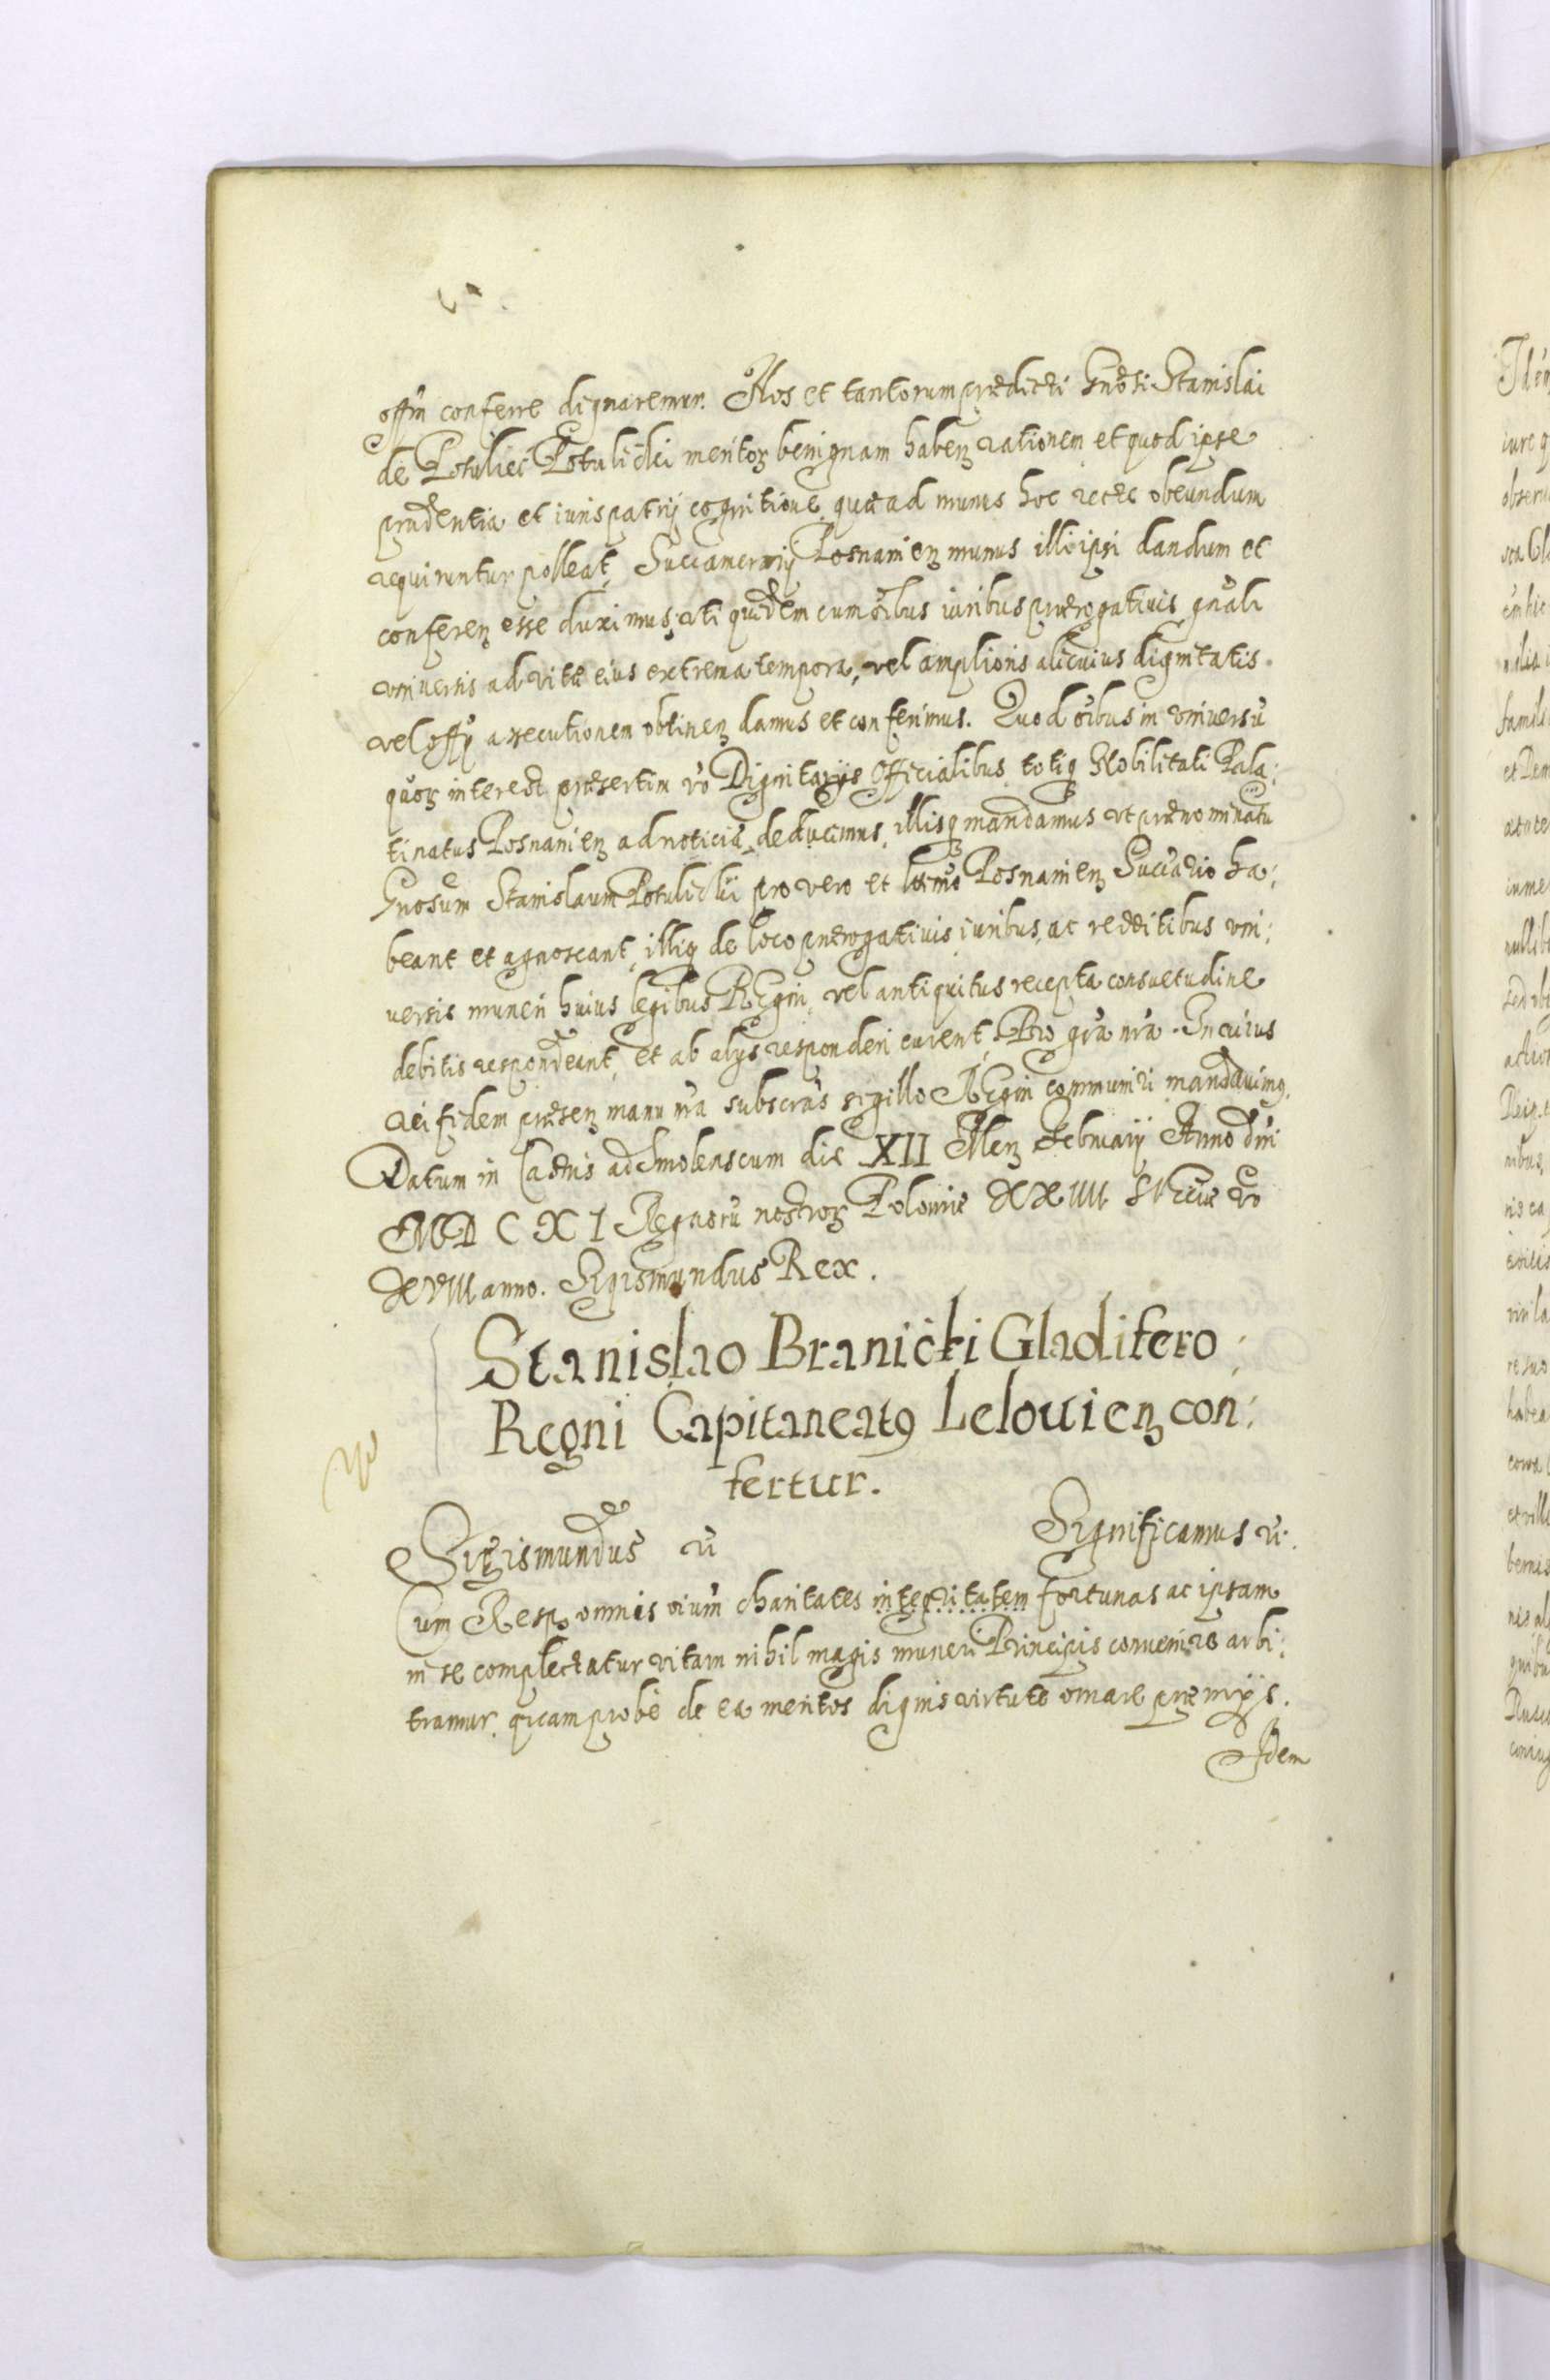 offm̃ conferre dignaremur. Nos et tantorum prædicti Gñosi Stanislai
de Potulicz Potulicki meritoꝝ benignam habenꝫ rationem et quod ipse
prudentia et iuris patrij cognitione, quæ ad munus hoc recte obeundum
requiruntur polleat, Succamerarij Posnanienꝫ munus illi ipsi dandum et
conferenꝫ esse duximus, uti quidem cum oĩbus iuribus prærogatiuis gñali
vniuersis ad vitæ eius extrema tempora, vel amplioris alicuius dignitatis
vel offij assecutionem obtinenꝫ damus et conferimus. Quod oĩbus in vniversũ
quoꝝ interest præsertim vō Dignitarijs Officialibus totiqꝫ Nobilitati Pala:
tinatus Posnanienꝫ ad noticiã deducimus, illisqꝫ mandamus ut prænominatũ
Gnosum Stanislaum Potulickii pro vero et ltimo Posnanienꝫ Succario ha:
beant et agnoscant, illiqꝫ de loco prærogatiuis iuribus, ac redditibus vni:
uersis muneri huius legibus Regni, vel antiquitus recepta consuetudine
debitis respondeant, et ab alijs responderi curent, Pro gr̃a nr̃a. In cuius
rei fidem præsenꝫ manu nr̃a subscras̃ sigillo Regni communiri mandauimꝰ.
Datum in Castris ad Smolenscum die XII Menꝫ Februarij Anno dñi
MDCXI Regnorũ nostroꝝ Poloniæ XXIIII Sveciæ vō
XVIII anno. Sigismundus Rex.
Stanislao Branicki Gladifero
Regni Capitaneatꝰ Lelouienꝫ con:
fertur.
Sigismundus
Significamus
Cum Resp. omnes oium̃ charitates integritatem fortunas ac ipsam
in se complectatur vitam nihil magis muneri Principis conuenire arbi:
tramur, quam probè de ea meritos dignis virtute ornare præmijs.
Idem